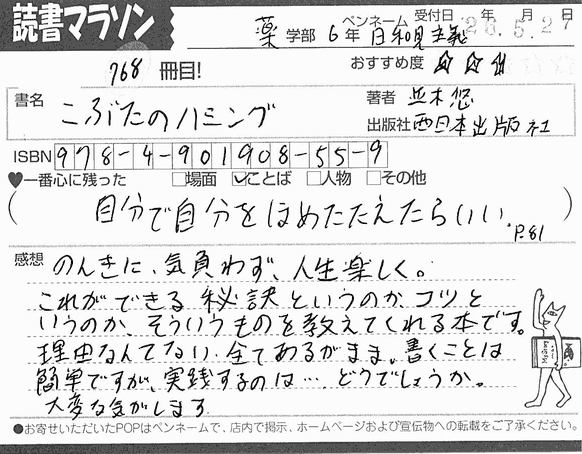 読書マラソン
薬 学部 6年 ペンネーム 日和見主義 受付日 年 月 日
26.5.27
768 冊目! おすすめ度 ☆☆☆
書名 こぶたのハミング 著者 並木悠
出版社 西日本出版社
ISBN 978-4-901908-55-9
♥一番心に残った □場面 ☑ことば □人物 □その他
(自分で自分をほめたたえたらいい。P.81)
感想 のんきに、気負わず、人生楽しく。
これができる秘訣というのか、コツと
いうのか、そういうものを教えてくれる本です。
理由なんてない、全てあるがまま。書くことは
簡単ですが、実践するのは… どうでしょうか。
大変な気がします
●お寄せいただいたPOPはペンネームで、店内で掲示、ホームページおよび宣伝物への転載をご了承ください。